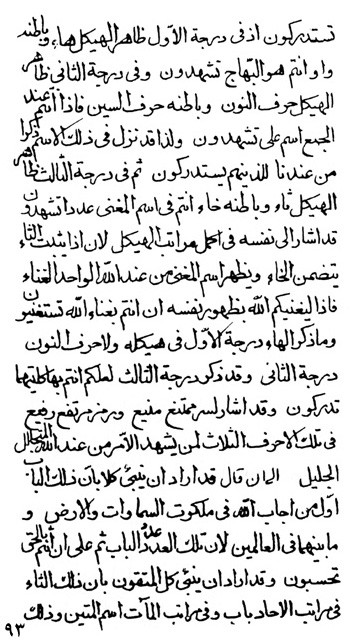 تستدركون اذ فى درجة الاول ظاهر الهيكل هاء وباطنه
واو انتم هو البهاج تشهدون وفى درجة الثانى ظاهر
الهيكل حرف النون وباطنه حرف السين فاذا انتم عند
الجمع اسم على تشهدون ولذا قد نزل فى ذلك الاسم ذكرا
من عندنا للذينهم يستدركون ثم فى درجة الثالث ظاهر
الهيكل ثاء وباطنه خاء انتم فى اسم المغنى عددا تشهدون
قد اشار الى نفسه فى اكمل مراتب الهيكل لان اذا يثبت الثاء
يتضمن الخاء ويظهر اسم المغنى من عند الله الواحد الغناء
فاذا ليغنيكم الله بظهور نفسه ان انتم بغناء الله تستغنيون
وما ذكر الهاء درجة الاول فى هيكله ولا حرف النون
درجة الثانى وقد ذكر درجة الثالث لعلكم انتم بباطنهما
تدركون وقد اشار لسر ممتنع منيع ورمز مرتفع رفيع
فى تلك الاحرف الثلاث لمن يشهد الامر من عند الله المتجلل
الجليل الى ان قال قد اراد ان ينبئ كلا بان ذلك الباب
اول من اجاب الله فى ملكوت السماوات والارض و
ما بينهما فى العالمين لان تلك العدد عدد الباب ثم على ان انتم بالحق
تحسبون وقد اراد ان ينبئ كل المتقون بان ذلك الثاء
فى مراتب الاحاد باب وفى مراتب المآت اسم المتين وذلك
٩٣